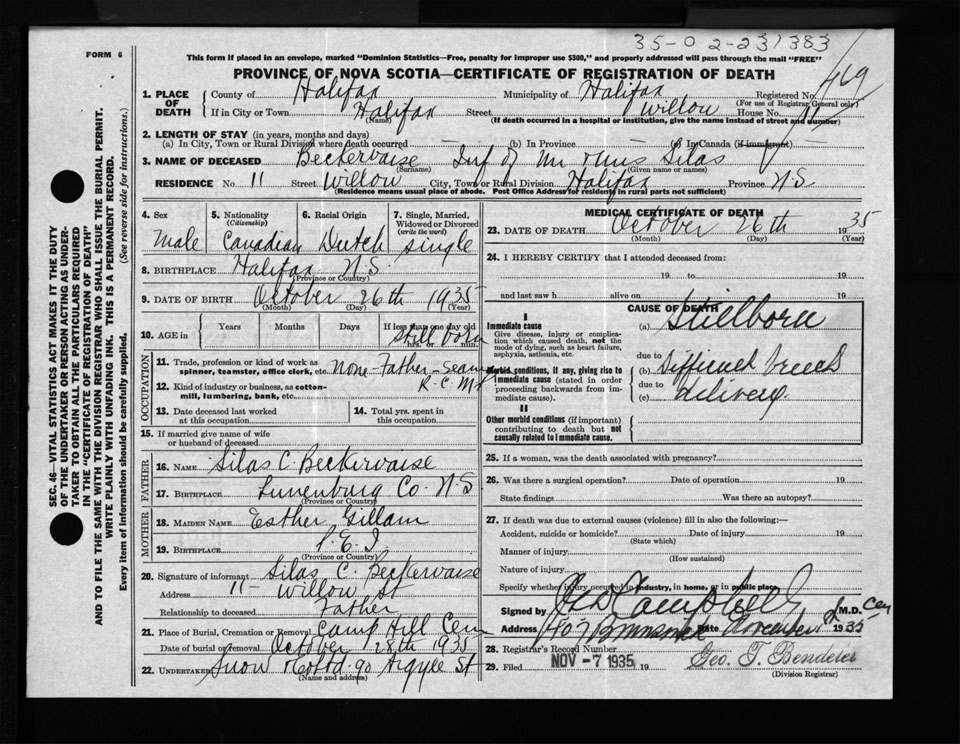 35-02-231383
FORM 6
This form if placed in an envelope, marked "Dominion Statistics—Free, penalty for improper use $300," and properly addressed will pass through the mail "FREE"
PROVINCE OF NOVA SCOTIA—CERTIFICATE OF REGISTRATION OF DEATH
469
1. PLACE OF DEATH
County of Halifax Municipality of Halifax Registered No.
(For use of Registrar General only)
If in City or Town Halifax Street Willow House No. 11
(Name) (If death occurred in a hospital or institution, give the name instead of street and number)
2. LENGTH OF STAY (in years, months and days)
(a) In City, Town or Rural Division where death occurred (b) In Province (c) In Canada (if immigrant)
3. NAME OF DECEASED Beckervaise Inf of Mr & Mrs Silas
(Surname) (Given name or names)
RESIDENCE No. 11 Street Willow City, Town or Rural Division Halifax Province N.S
(Residence means usual place of abode. Post Office Address for residents in rural parts not sufficient)
4. Sex
male
5. Nationality
(Citizenship)
Canadian
6. Racial Origin
Dutch
7. Single, Married, Widowed or Divorced
(write the word)
single
8. BIRTHPLACE Halifax N.S.
(Province or Country)
9. DATE OF BIRTH October 26th 1935
(Month) (Day) (Year)
10. AGE in
Years Months Days If less than one day old
Still born
hrs. or min.
OCCUPATION
11. Trade, profession or kind of work as spinner, teamster, office clerk, etc. None - Father - Seaman
R.C.M.P
12. Kind of industry or business, as cotton-mill, lumbering, bank, etc.
13. Date deceased last worked at this occupation
14. Total yrs. spent in this occupation
15. If married give name of wife or husband of deceased
FATHER
16. NAME Silas C. Beckervaise
17. BIRTHPLACE Lunenburg Co. N.S
(Province or Country)
MOTHER
18. MAIDEN NAME Esther Gillam
19. BIRTHPLACE P.E.I
(Province or Country)
20. Signature of informant Silas C. Beckervaise
Address 11- Willow St
Relationship to deceased Father
21. Place of Burial, Cremation or Removal Camp Hill Cem
Date of burial or removal October 28th 1935
22. UNDERTAKER Snow & Co Ltd. 90 Argyle St
(Name and address)
MEDICAL CERTIFICATE OF DEATH
23. DATE OF DEATH October 26th 1935
(Month) (Day) (Year)
24. I HEREBY CERTIFY that I attended deceased from:
19 to 19
and last saw h alive on 19
CAUSE OF DEATH
I
Immediate cause
Give disease, injury or complication which caused death, not the mode of dying, such as heart failure, asphyxia, asthenia, etc.
(a) Stillborn
due to
Morbid conditions, if any, giving rise to immediate cause (stated in order proceeding backwards from immediate cause).
(b) difficult breech
due to
(c) delivery.
II
Other morbid conditions (if important) contributing to death but not causally related to immediate cause.
25. If a woman, was the death associated with pregnancy?
26. Was there a surgical operation? Date of operation 19
State findings Was there an autopsy?
27. If death was due to external causes (violence) fill in also the following:—
Accident, suicide or homicide? Date of injury 19
(State which)
Manner of injury
(How sustained)
Nature of injury
Specify whether injury occurred in industry, in home, or in public place
Signed by Campbell M.D.
Address 407 Brunswick Date November 2 1935
28. Registrar's Record Number
29. Filed NOV - 7 1935 19 Geo. T. Bendeler
(Division Registrar)
SEC. 46—VITAL STATISTICS ACT MAKES IT THE DUTY
OF THE UNDERTAKER OR PERSON ACTING AS UNDER-
TAKER TO OBTAIN ALL THE PARTICULARS REQUIRED
IN THE "CERTIFICATE OF REGISTRATION OF DEATH"
AND TO FILE THE SAME WITH THE DIVISION REGISTRAR WHO SHALL ISSUE THE BURIAL PERMIT.
WRITE PLAINLY WITH UNFADING INK. THIS IS A PERMANENT RECORD.
Every item of information should be carefully supplied. (See reverse side for instructions.)